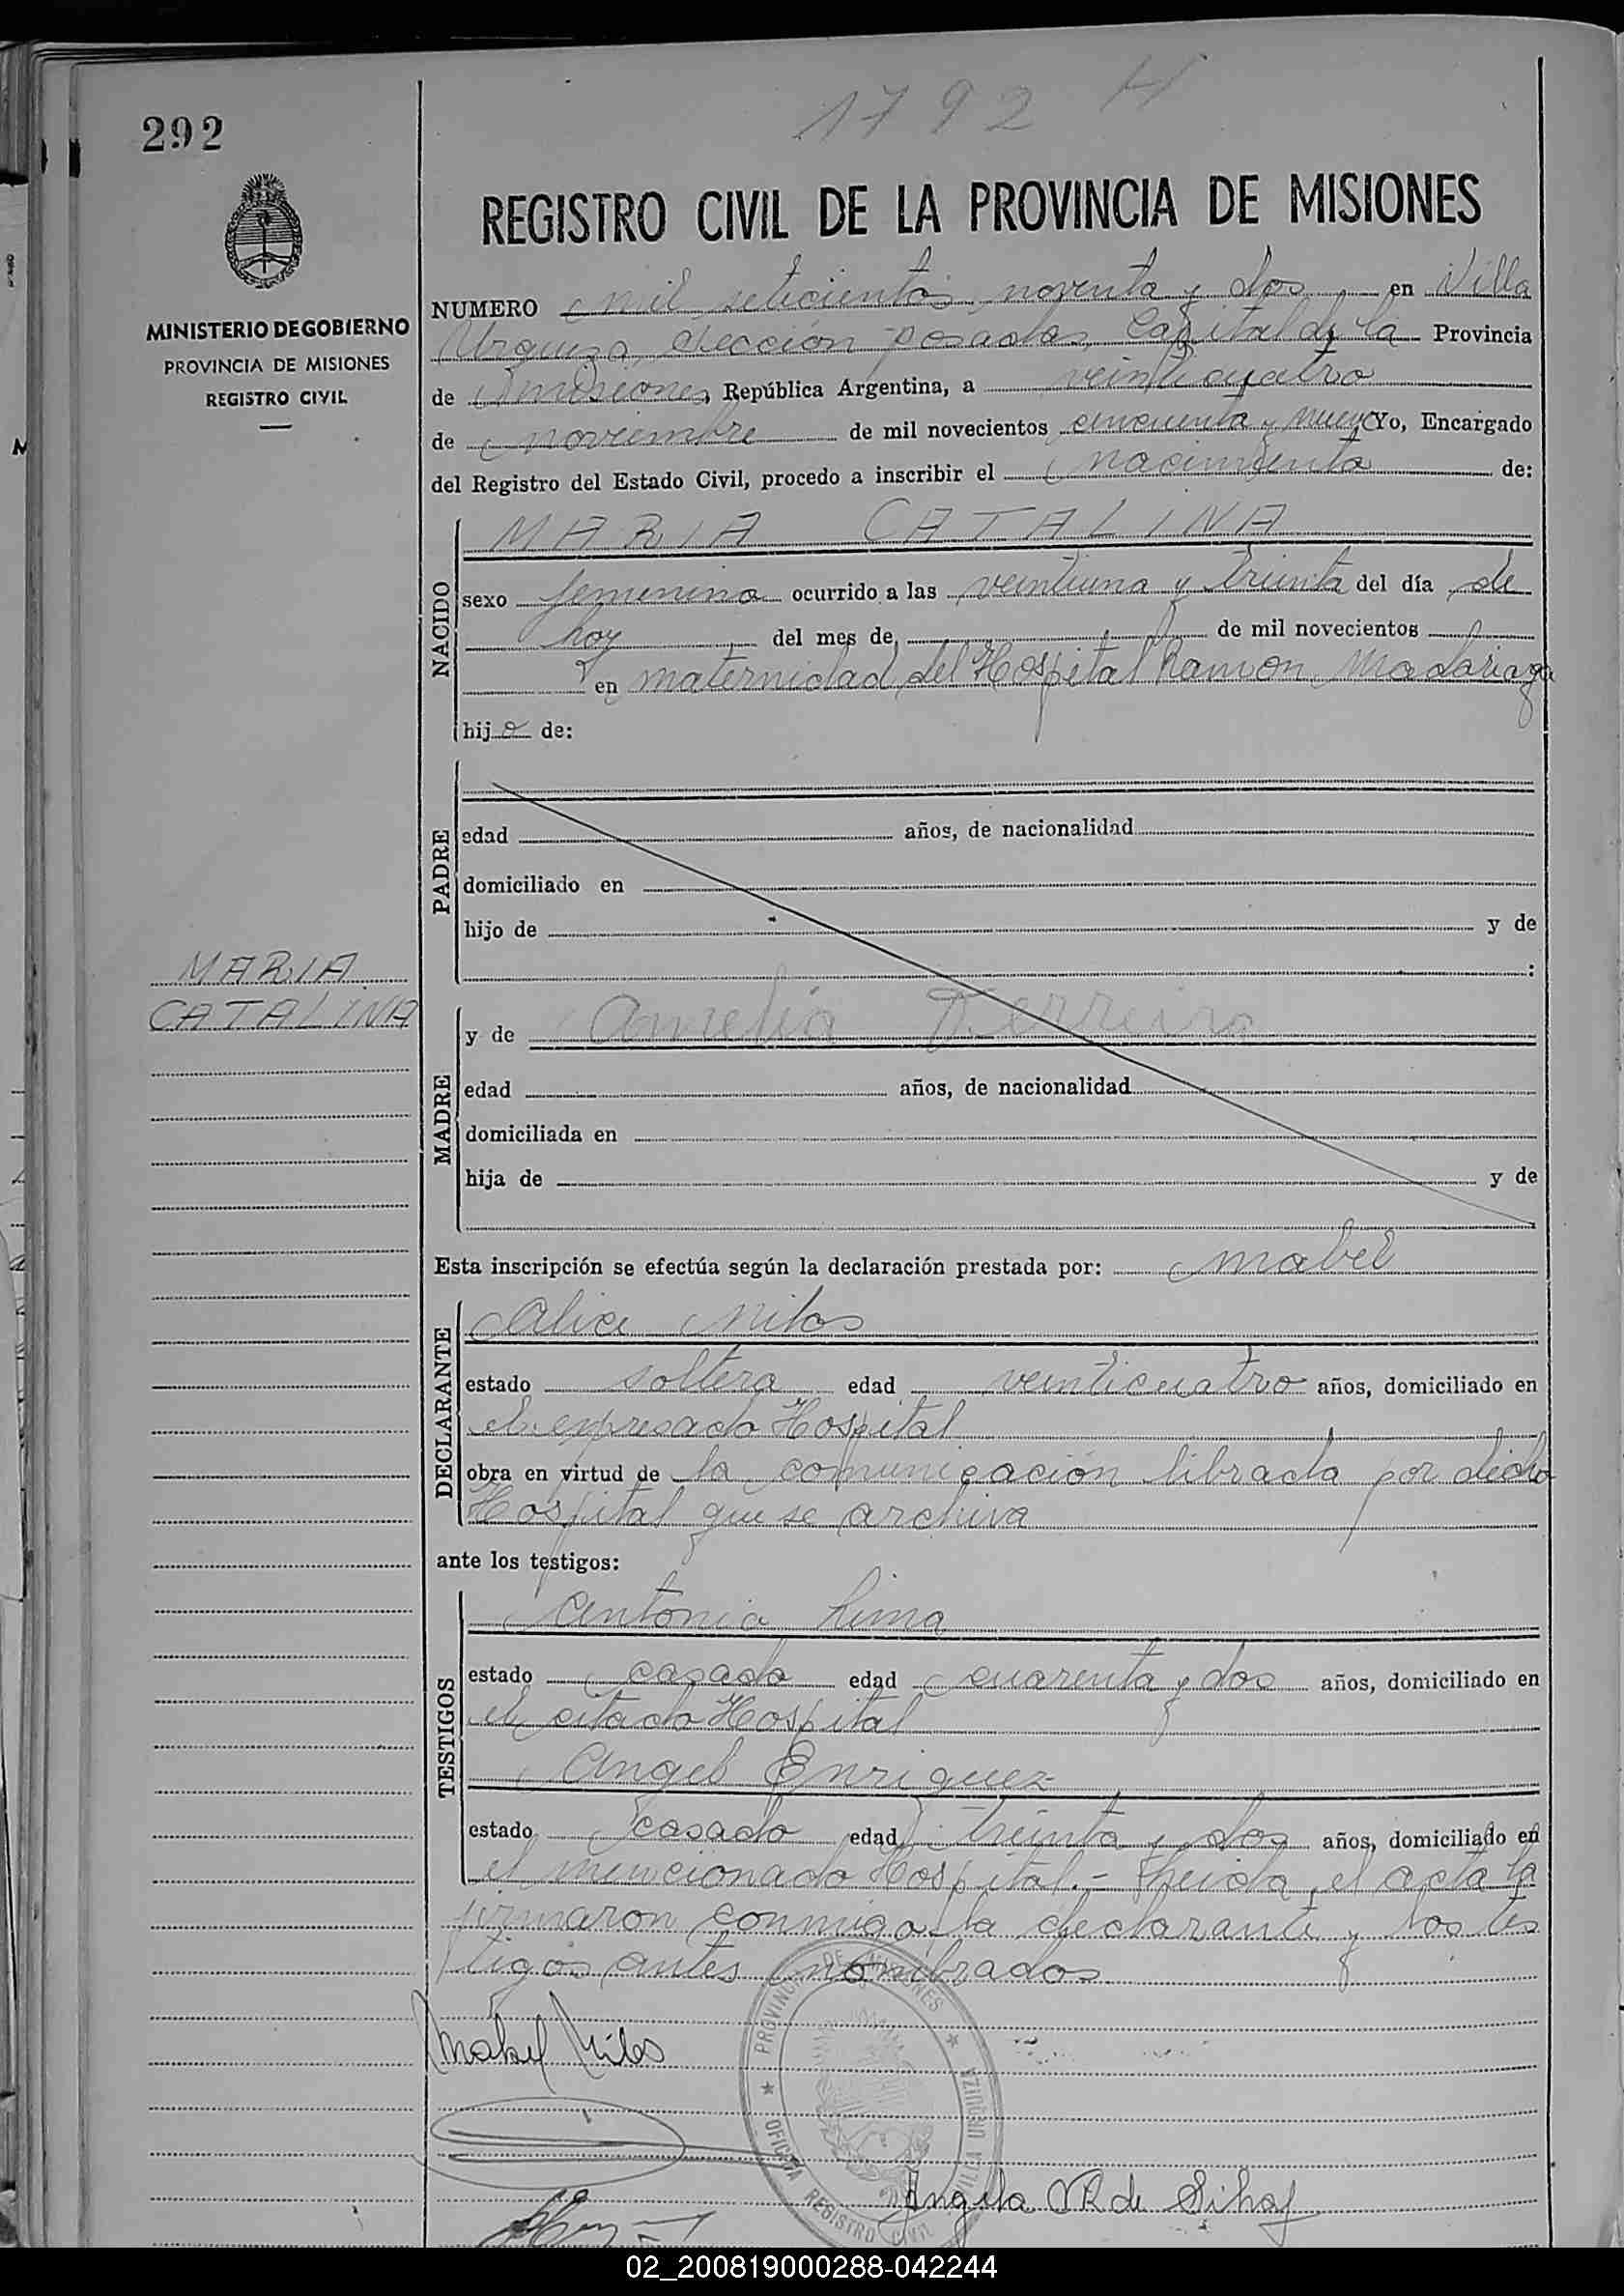 292
1792 H
MINISTERIO DE GOBIERNO
PROVINCIA DE MISIONES
REGISTRO CIVIL
REGISTRO CIVIL DE LA PROVINCIA DE MISIONES
NUMERO mil seticientos noventa y dos, en Villa
Urquiza, sección posadas, Capital de la Provincia
de misiones, República Argentina, a veinticuatro
de noviembre de mil novecientos cincuenta y nueve Yo, Encargado
del Registro del Estado Civil, procedo a inscribir el nacimiento de:
NACIDO
MARIA CATALINA
sexo femenino ocurrido a las veintiuna y treinta del día de
hoy del mes de, de mil novecientos
en maternidad del Hospital Ramon Madariaga
hija de:
PADRE
edad años, de nacionalidad
domiciliado en
hijo de y de
:
MARIA
CATALINA
MADRE
y de Amelia Ferreira
edad años, de nacionalidad
domiciliada en
hija de y de
Esta inscripción se efectúa según la declaración prestada por: mabel
DECLARANTE
Alice Milos
estado soltera edad veinticuatro años, domiciliado en
el expresado Hospital
obra en virtud de la comunicación librada por dicho
Hospital que se archiva
ante los testigos:
TESTIGOS
Antonio Lima
estado casado edad cuarenta y dos años, domiciliado en
el citado Hospital
Angel Enriquez
estado casado edad treinta y dos años, domiciliado en
el mencionado Hospital.- Leida el acta la
firmaron conmigo la declarante y los tes
tigos antes nombrados
Mabel Milos
PROVINCIA DE MISIONES
OFICINA REGISTRO CIVIL VILLA URQUIZA
Angela R de
02_200819000288-042244